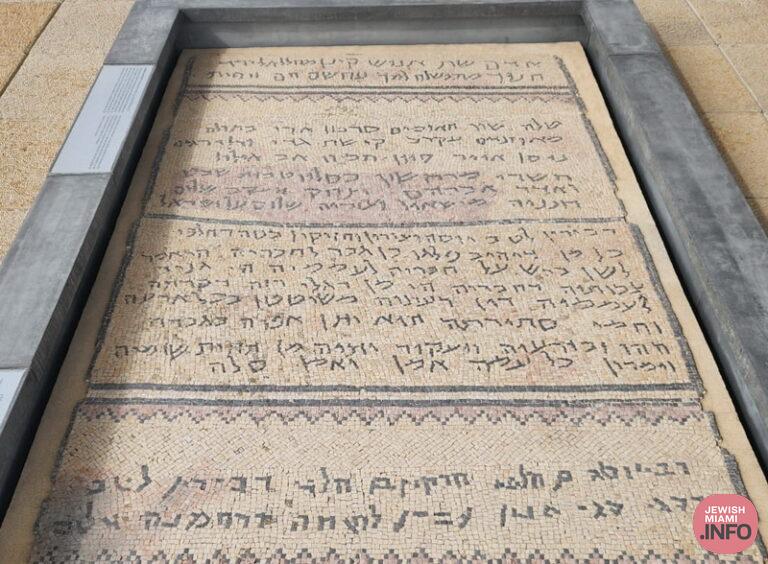 אדם שת אנוש קינן מהללאל ירד
חנוך מתושלח למך נוח שם חם ויפת
טלה שור תאומים סרטן ארי בתולה
מאוזניים עקרב קישת גדי ודלי דגים
ניסן אייר סיון תמוז אב אילול
תשרי מרחשון כסליו טבית שבט
ואדר אברהם יצחק יעקב שלום
חנניה מישאיל ועזריה שלום על ישראל
דכירין לטב יוסה ועירון וחזיקיו בנוה דחלפי
כל מן דיהיב פלגו בן גבר לחבריה הי אמר
לשן ביש על חבריה לעממיה הי גניב
צבותיה דחבריה הי מן דגלי רזה דקרתה
לעממיה דין דעינוה משוטטן בכל ארעה
וחמי סתירתה הוא יתן אפוה בגברה
ההו ובזרעיה ויעקור יתיה מן תחות שומיה
וימרון כל עמה אמן ואמן סלה
רבי יוסה בן חלפי חזקיו בן חלפי דכירין לטב
סגי הנון עבדו לשמה דרחמנה שלום
JEWISH
MIAMI
.INFO